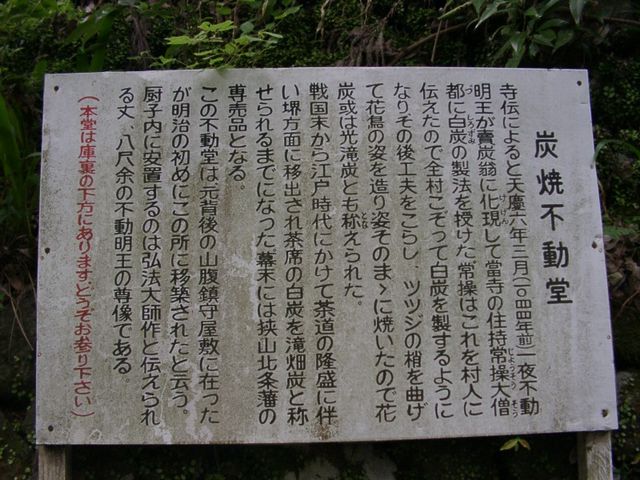 炭焼不動堂
寺伝によると天慶六年三月(一〇四四年前)一夜不動
明王が賣炭翁に化現して當寺の住持常操大僧
都に白炭の製法を授けた常操はこれを村人に
伝えたので全村こぞって白炭を製するように
なりその後工夫をこらし、ツツジの梢を曲げ
て花鳥の姿を造り姿そのまゝに焼いたので花
炭或は光滝炭とも称えられた。
戦国末から江戸時代にかけて茶道の隆盛に伴
い堺方面に移出され茶席の白炭を滝畑炭と称
せられるまでになった幕末には狭山北条藩の
専売品となる。
この不動堂は元背後の山腹鎮守屋敷に在った
が明治の初めにこの所に移築されたと云う。
厨子内に安置するのは弘法大師作と伝えられ
る丈、八尺余の不動明王の尊像である。
(本堂は庫裏の下方にありますどうぞお参り下さい)